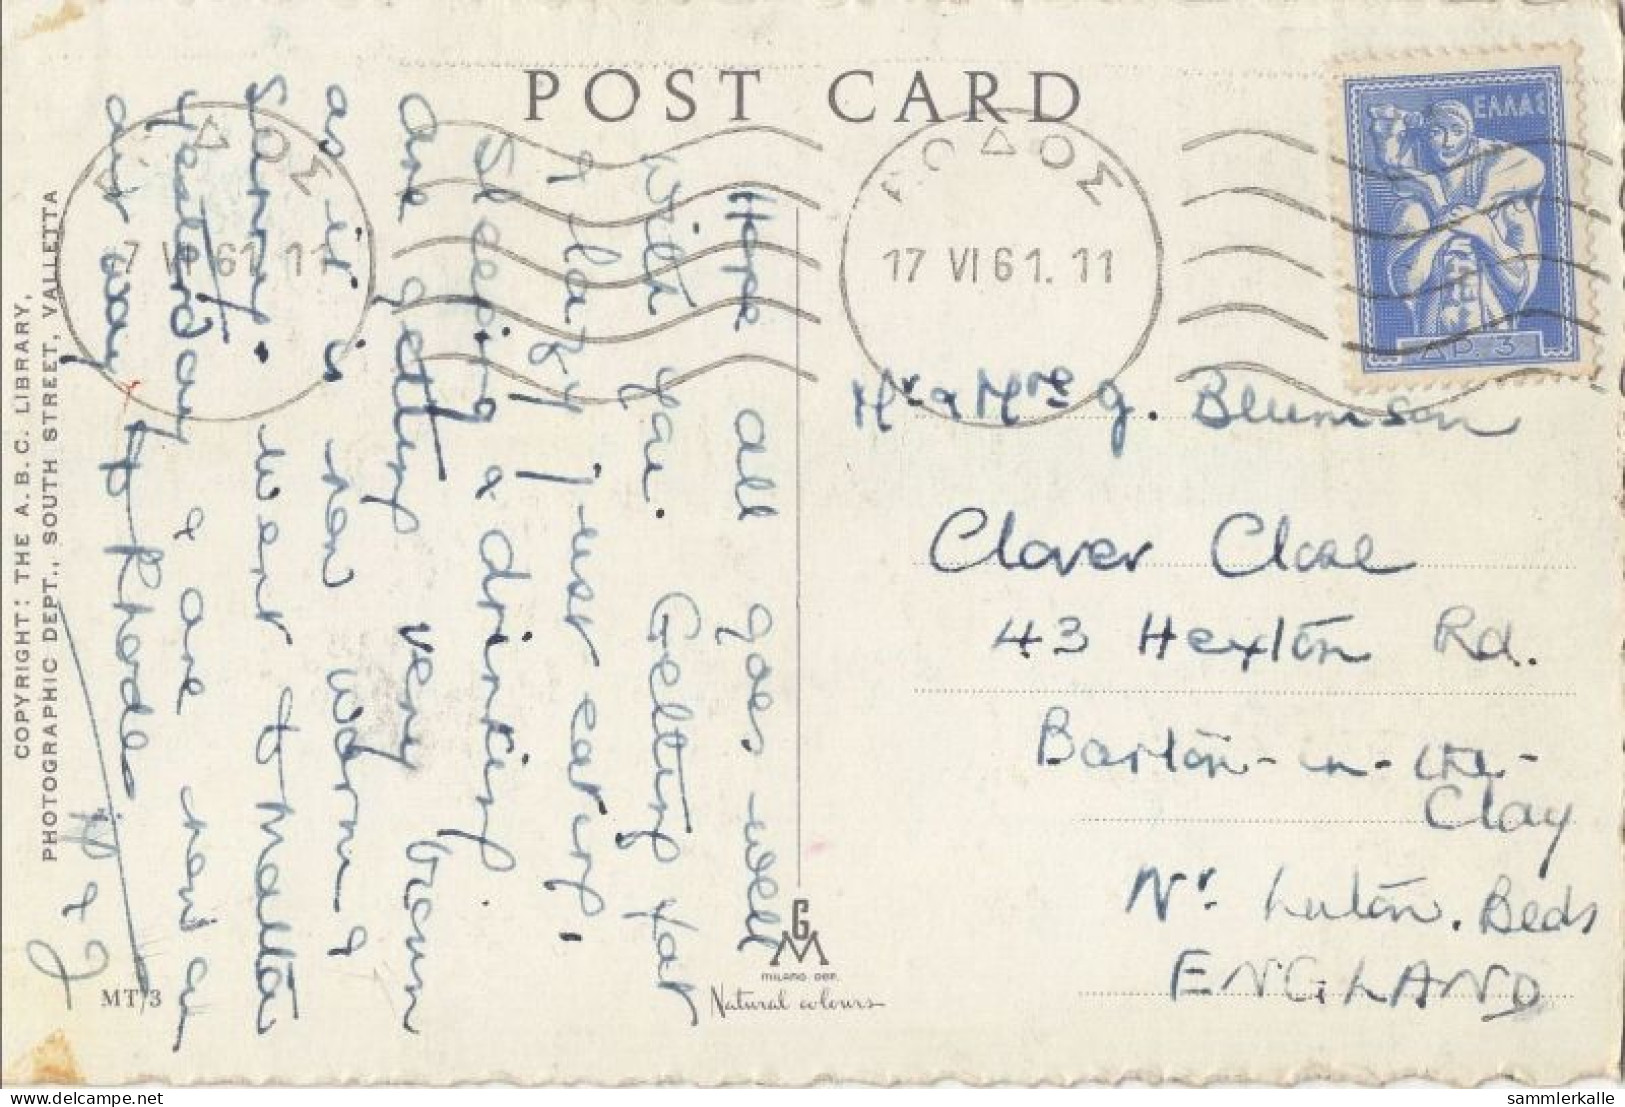 POST CARD
ΕΛΛΑΣ
ΔΡ. 3
ΡΟΔΟΣ
17 VI 61. 11
ΔΟΣ
7 VI 61 11
Hope all goes well
with you. Getting fat
& lazy just eating,
Sleeping & drinking
are getting very brown
as it is now warm &
Sunny. Went to Malta
yesterday & are now on
our way to Rhodes
Mr & Mrs G. Blumson
Clover Close
43 Hexton Rd.
Barton-in-the-
Clay
Nr. Luton. Beds
ENGLAND
COPYRIGHT: THE A.B.C. LIBRARY,
PHOTOGRAPHIC DEPT., SOUTH STREET, VALLETTA
MT/3
GM
MILANO DEP.
Natural colours
sammlerkalle